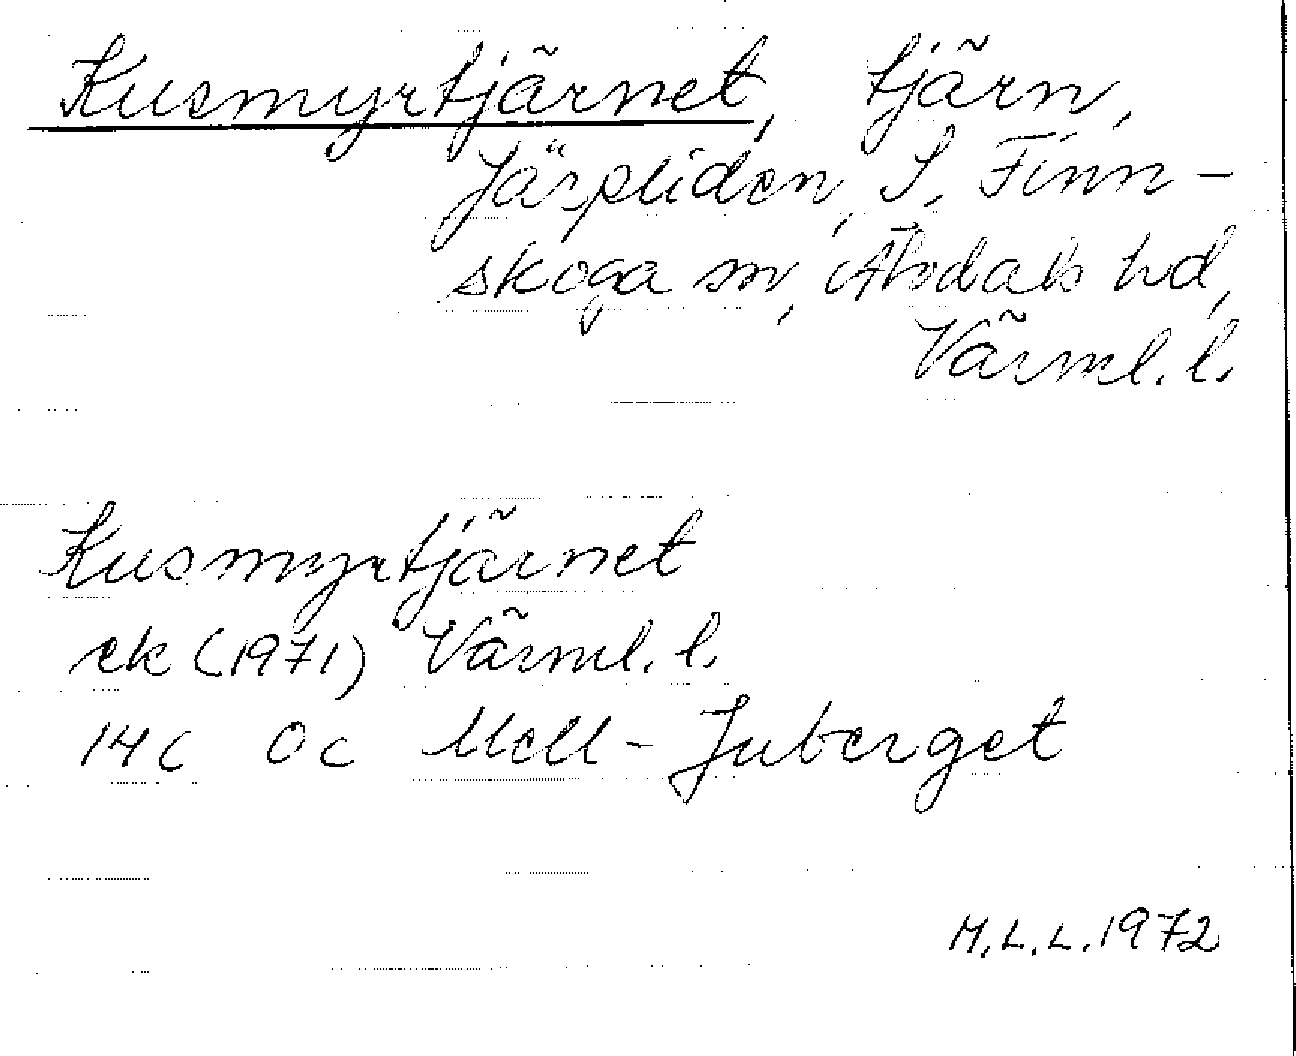 Kusmyrtjärnet, tjärn,
Järpliden, S. Finn-
skoga sn, Älvdals hd,
Värml. l.
Kusmyrtjärnet
ek (1971) Värml. l.
14c 0c Mell-Juberget
M.L.L. 1972